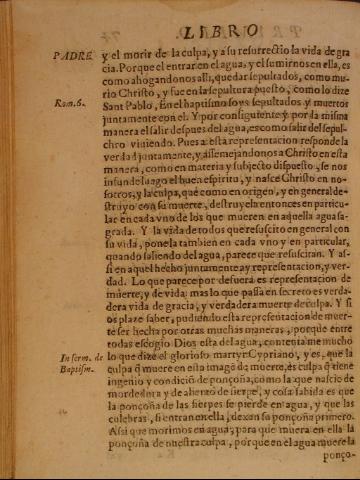 LIBRO
PADRE
y el morir de la culpa, y a su resurrectio la vida de gra
cia. Porque el entrar en el agua, y el sumirnos en ella, es
como ahogandonos alli, quedar sepultados, como mu-
rio Christo, y fue en la sepultura puesto, como lo dize
Rom. 6.
Sant Pablo, En el baptismo soys sepultados y muertos
juntamente con el. Y por consiguiente y por la misma
manera el salir despues del agua, es como salir del sepul-
chro viuiendo. Pues a esta representacion responde la
verdad juntamente, y assemejandonos a Christo en esta
manera, como en materia y subjecto dispuesto, se nos
infunde luego el buen espiritu, y nasce Christo en no-
sotros, y la culpa, que como en origen, y en general de-
struyo con su muerte, destruyela entonces en particu-
lar en cada vno de los que mueren en aquella agua sa-
grada. Y la vida de todos que resuscito en general con
su vida, ponela tambien en cada vno y en particular,
quando saliendo del agua, parece que resuscitan. Y as-
si en aquel hecho juntamente ay representacion, y ver-
dad. Lo que parece por defuera es representacion de
muerte, y de vida: mas lo que passa en secreto es verda-
dera vida de gracia, y verdadera muerte de culpa. Y si
os plaze saber, pudiendo esta representacion de muer-
te ser hecha por otras muchas maneras, porque entre
todas escogio Dios esta del agua, contentame mucho
In serm. de
Baptism.
lo que dize el glorioso martyr Cypriano, y es, que la
culpa q̃ muere en esta imagẽ de muerte, es culpa q̃ tiene
ingenio y condiciõ de ponçoña, como la que nascio de
mordedura y de aliento de sierpe, y cosa sabida es que
la ponçoña de las sierpes se pierde en agua, y que las
culebras, si entran en ella, dexan su ponçoña primero.
Assi que morimos en agua, para que muera en ella la
ponçoña de nuestra culpa, porque en el agua muere la
ponço-